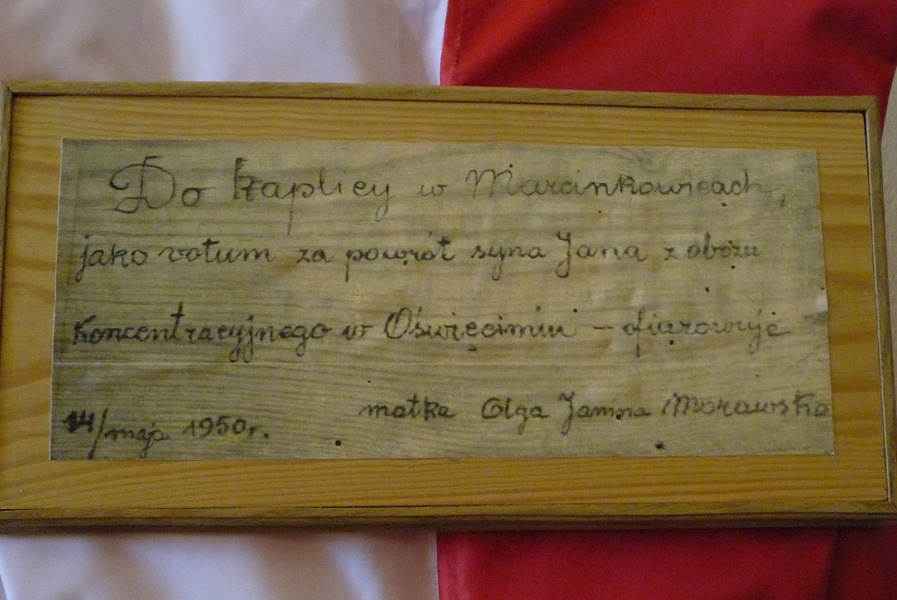 Do kaplicy w Marcinkowicach,
jako votum za powrót syna Jana z obozu
koncentracyjnego w Oświęcimiu – ofiarowuje
matka Olga Janina Morawska
14/maja 1950r.